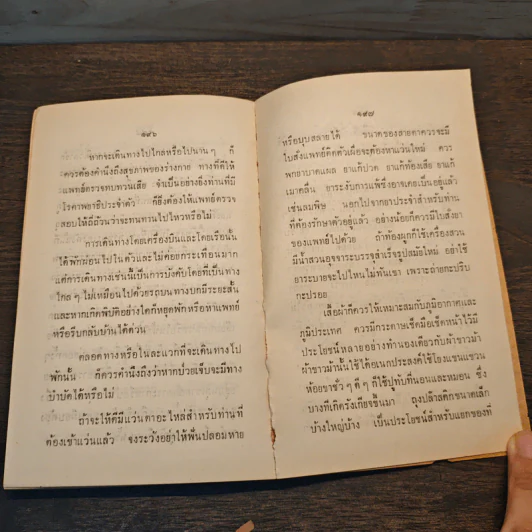 ๑๙๖
หากจะเดินทางไปไกลหรือไปนาน ๆ ก็
ควรต้องคำนึงถึงสุขภาพของร่างกาย ทางที่ดีให้
แพทย์ตรวจทบทวนเสีย จำเป็นอย่างยิ่งท่านที่มี
โรคาพยาธิประจำตัว ก็ยิ่งต้องให้แพทย์ตรวจ
สอบให้ถี่ถ้วนว่าจะทนทานไปไหวหรือไม่
การเดินทางโดยเครื่องบินและโดยเรือนั้น
ได้พักผ่อนไปในตัวและไม่ค่อยกระเทือนมาก
แต่การเดินทางเช่นนี้เป็นการบังคับโดยที่เป็นทาง
ไกล ๆ ไม่เหมือนไปด้วยรถบนทางบกมีระยะสั้น
และหากเกิดพิบัติอย่างใดก็หยุดพักหรือหาแพทย์
หรือรีบกลับบ้านได้ด่วน
ตลอดทางหรือในละแวกที่จะเดินทางไป
พักนั้น ก็ควรคำนึงถึงว่าหากป่วยเจ็บจะมีทาง
บำบัดได้หรือไม่
ถ้าจะให้ดีมีแว่นตาอะไหล่สำหรับท่านที่
ต้องเข้าแว่นแล้ว จงระวังอย่าให้ฟันปลอมหาย
๑๙๗
หรือบุบสลายได้ ขนาดของสายตาควรจะมี
ใบสั่งแพทย์ติดตัวเผื่อจะต้องหาแว่นใหม่ ควร
พกยาบาดแผล ยาแก้ปวด ยาแก้ท้องเสีย ยาแก้
เมาคลื่น ยาระงับการแพ้ซึ่งอาจเคยเป็นอยู่แล้ว
เช่นลมพิษ นอกไปจากยาประจำสำหรับท่าน
ที่ต้องรักษาตัวอยู่แล้ว อย่างน้อยก็ควรมีใบสั่งยา
ของแพทย์ไปด้วย ถ้าท้องผูกก็ใช้เครื่องสวน
มีน้ำสวนอุจจาระบรรจุสำเร็จรูปสมัยใหม่ อย่าใช้
ยาระบายจะไปไหนไม่พ้นเขา เพราะถ่ายกะปริบ
กะปรอย
เสื้อผ้าก็ควรให้เหมาะสมกับภูมิอากาศและ
ภูมิประเทศ ควรมีกระดาษเช็ดมือเช็ดหน้าไว้มี
ประโยชน์หลายอย่างทำนองเดียวกับผ้าขาวม้า
ผ้าขาวม้านั้นใช้ได้อเนกประสงค์ใช้โยงแขนแขวน
ห้อยขาชั่ว ๆ ดี ๆ ก็ใช้ปูทับที่นอนและหมอน ซึ่ง
บางทีเกิดรังเกียจขึ้นมา ถุงปลาสติกขนาดเล็ก
บ้างใหญ่บ้าง เป็นประโยชน์สำหรับแยกของที่